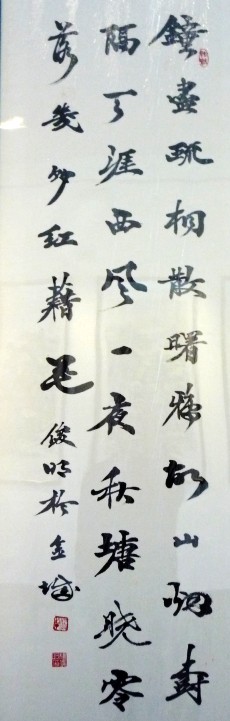 鐘盡疏桐散曙鴉故山烟樹
隔天涯西风一夜秋塘晓零
落幾多红藕花 俊明於金城